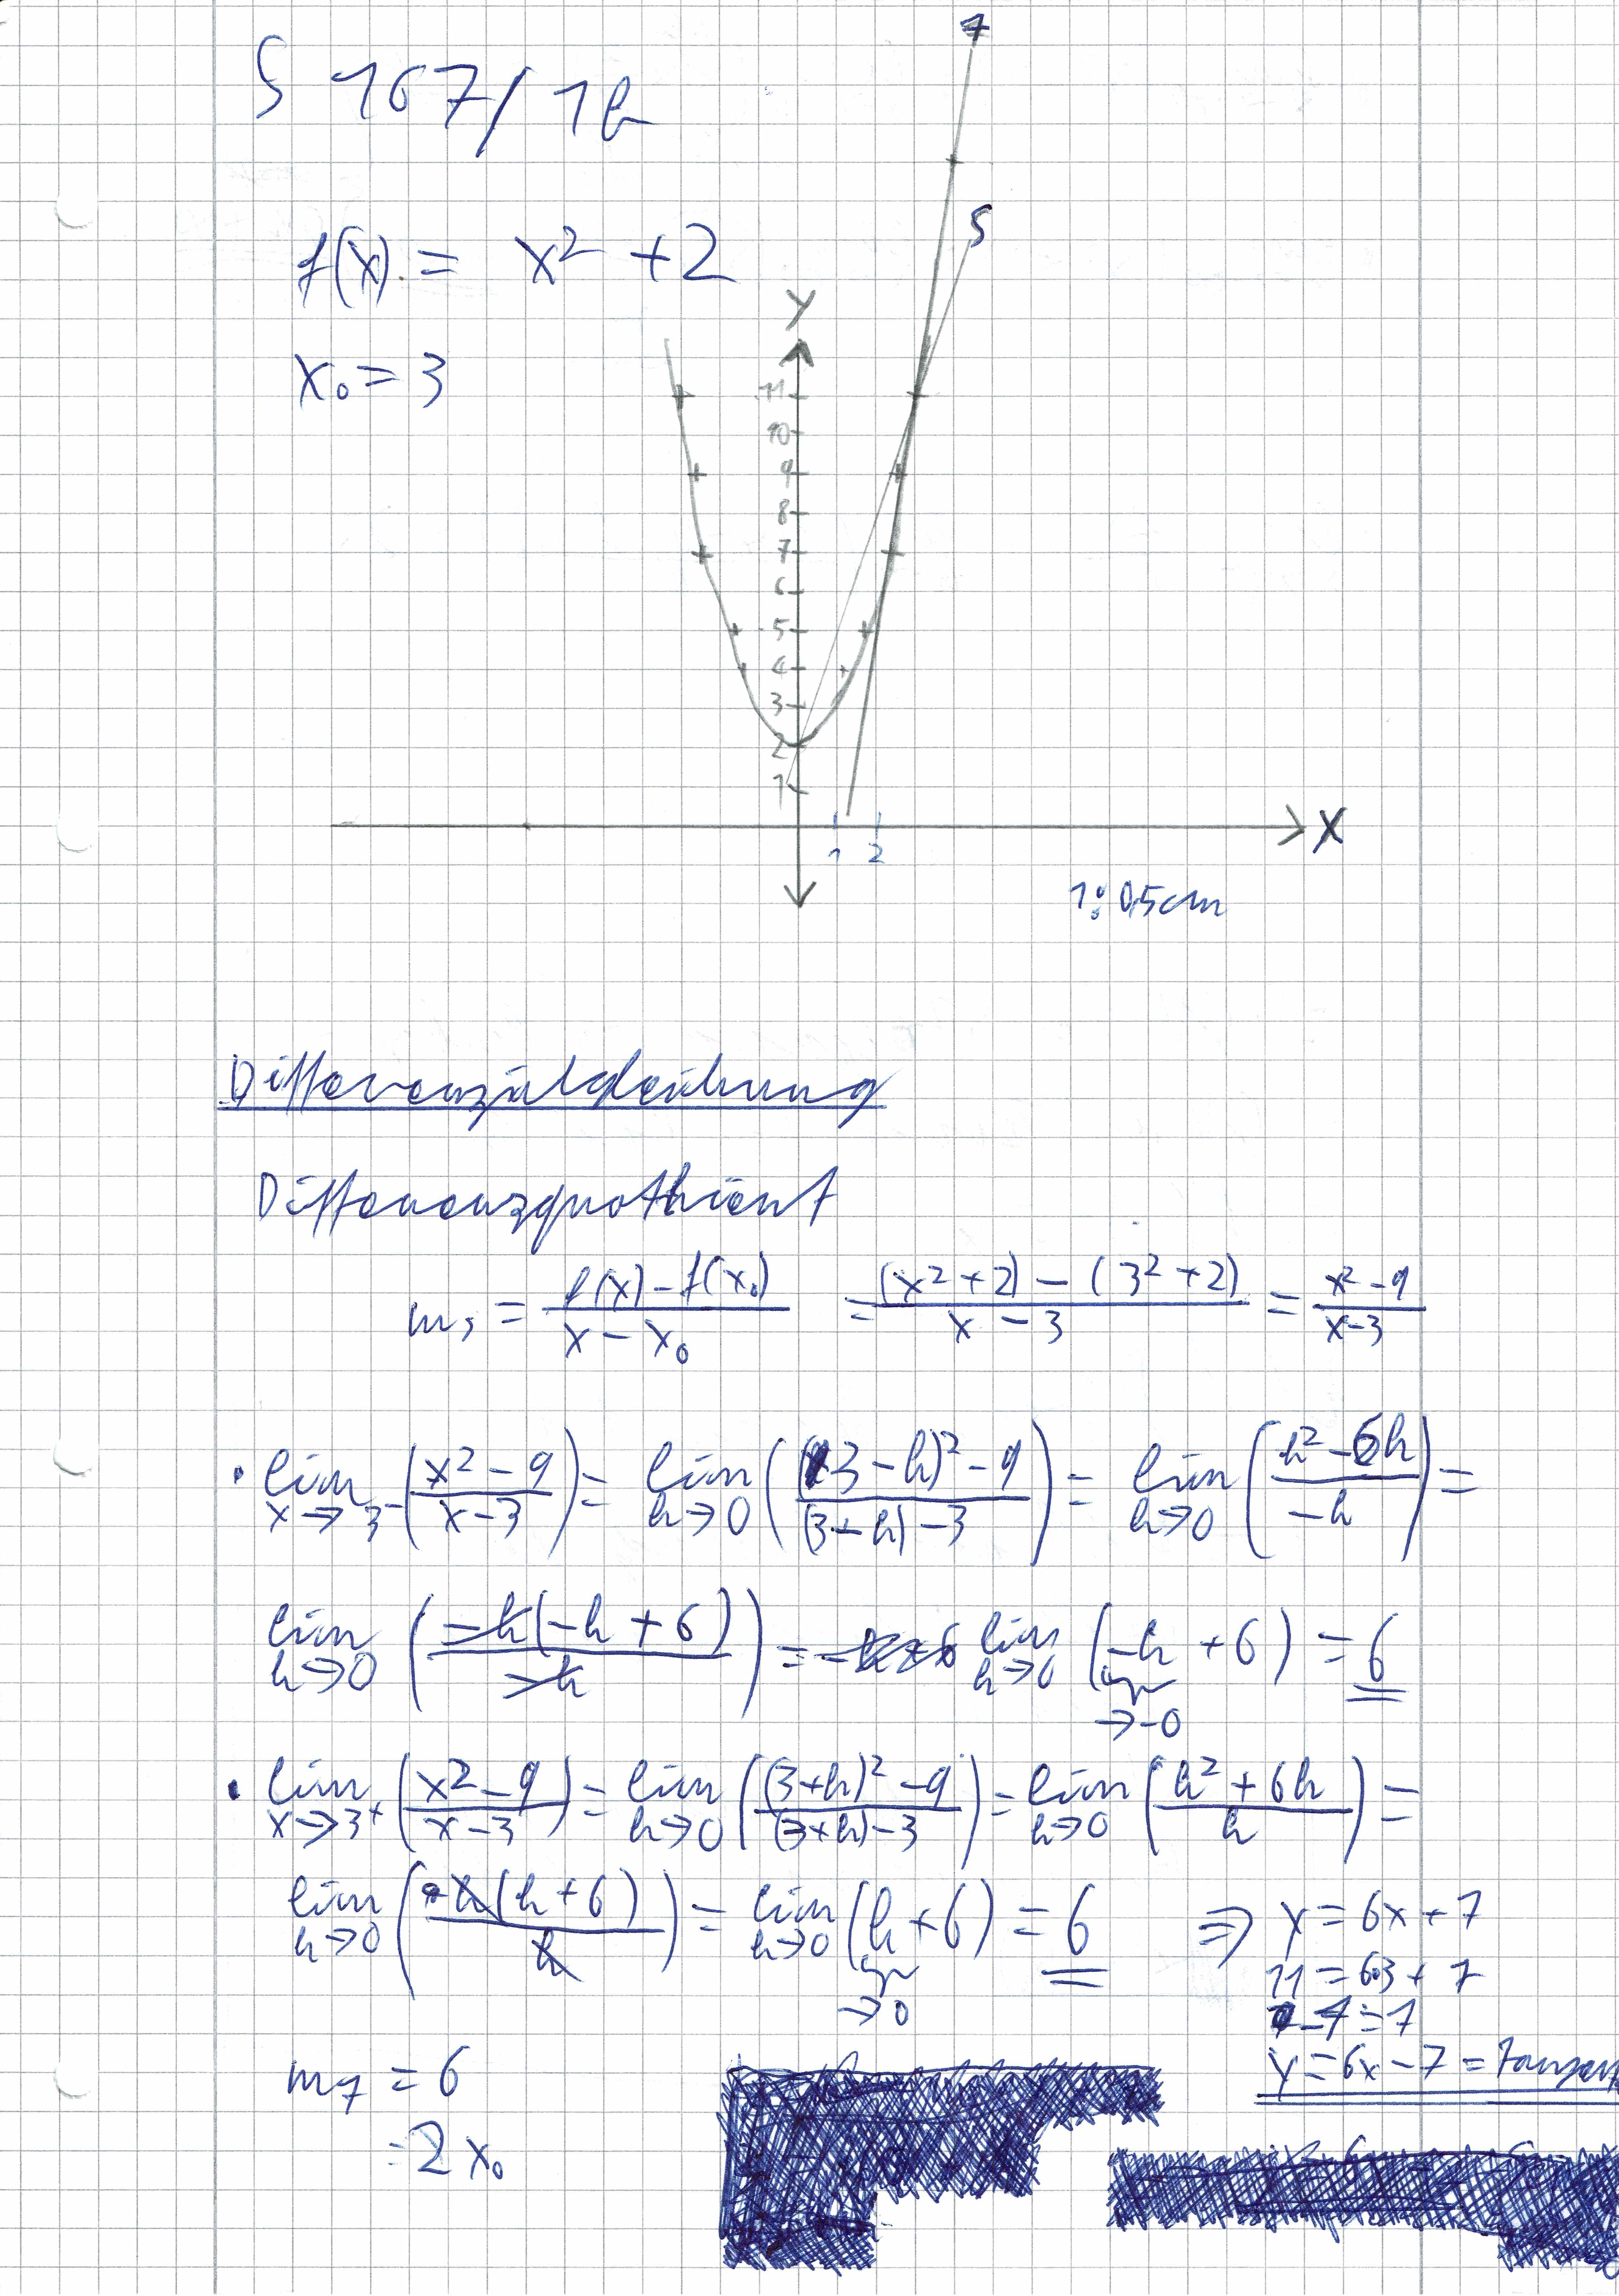 S 167/1b
f(x) = x² + 2
x₀ = 3
T
S
Y
11
10
9
8
7
6
5
4
3
2
1
1 2
X
1 : 0,5cm
Differenzialgleichung
Differenzquothient
mₛ = (f(x) - f(x₀))/(x - x₀) = ((x² + 2) - (3² + 2))/(x - 3) = (x² - 9)/(x - 3)
• lim x→3⁻ ((x² - 9)/(x - 3)) = lim h→0 (((3 - h)² - 9)/((3 - h) - 3)) = lim h→0 ((h² - 6h)/(-h)) =
lim h→0 ((-h(-h + 6))/(-h)) = lim h→0 (-h + 6) = 6
→-0
• lim x→3⁺ ((x² - 9)/(x - 3)) = lim h→0 (((3+h)² - 9)/((3+h) - 3)) = lim h→0 ((h² + 6h)/h) =
lim h→0 ((h(h + 6))/h) = lim h→0 (h + 6) = 6 ⇒ y = 6x + T
→0
11 = 6·3 + T
-7 = T
y = 6x - 7 =
m_T = 6
= 2x₀